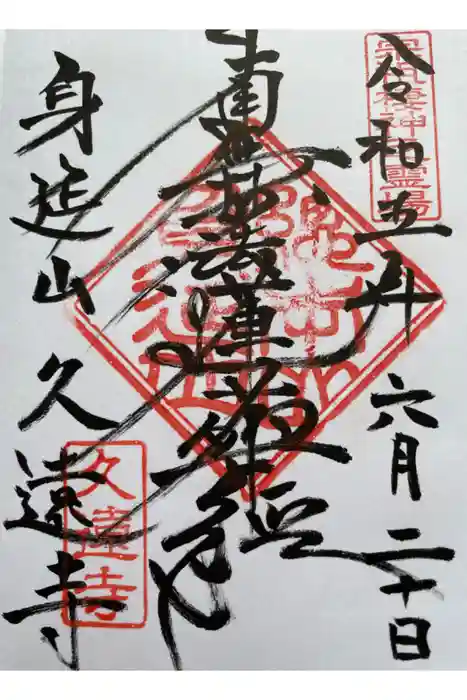 宗祖棲神霊場
令和五年六月二十日
南無妙法蓮華経
身延山久遠寺
久遠寺